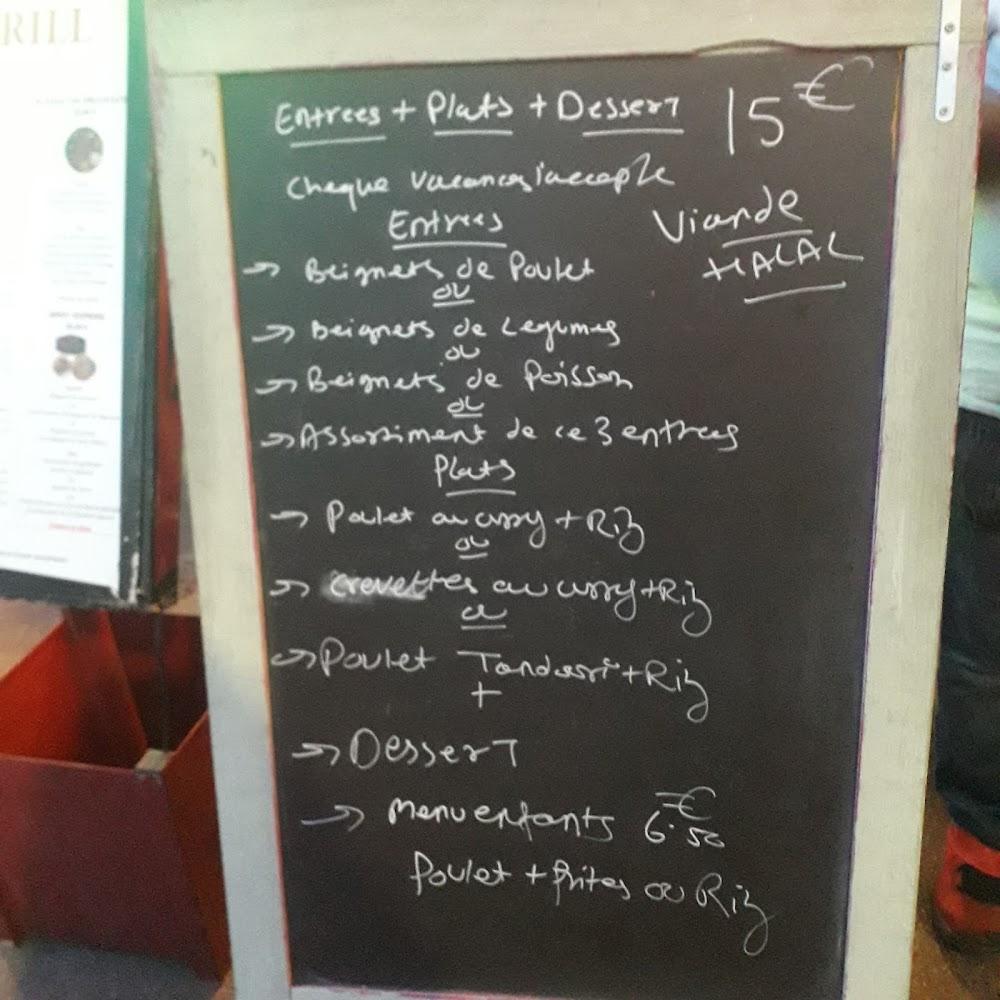 RILL
Entrees + Plats + Dessert 15€
cheque vacances accepte
Viande
HALAL
Entrees
→ Beignets de Poulet
ou
→ Beignets de Legumes
ou
→ Beignets de Poisson
ou
→ Assortiment de ce 3 entrees
Plats
→ Poulet au curry + Riz
ou
→ crevettes au curry + Riz
ou
→ Poulet Tandoori + Riz
+
→ Dessert
→ Menu enfants 6.50€
Poulet + frites ou Riz